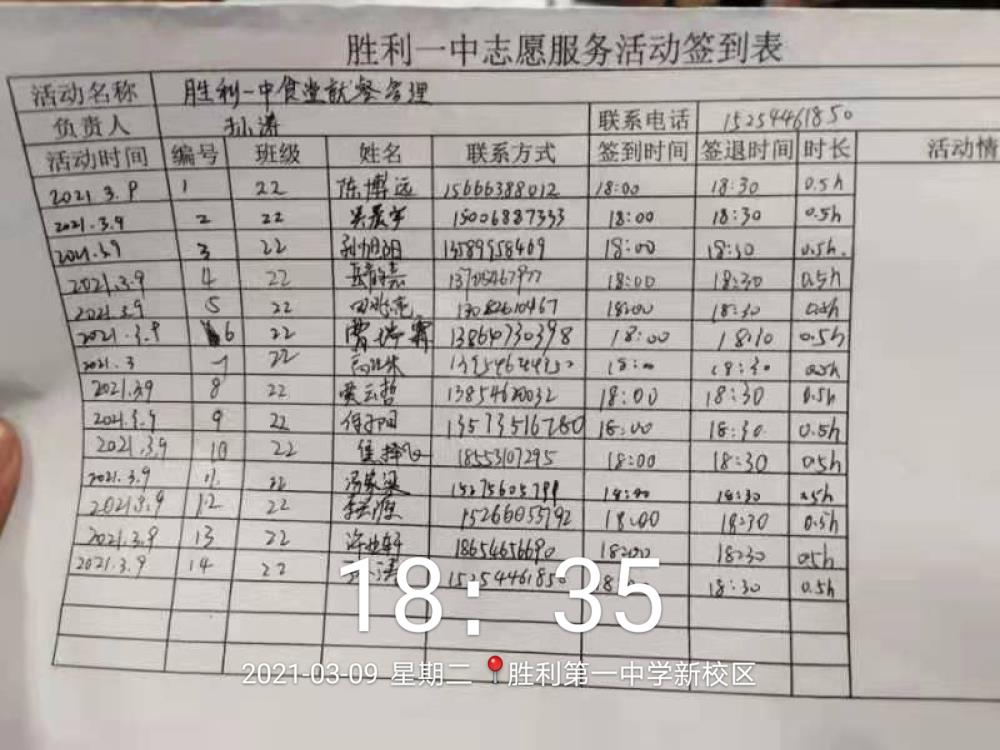 胜利一中志愿服务活动签到表
活动名称 胜利一中食堂就餐管理
负责人 孙涛 联系电话 15254461850
活动时间 编号 班级 姓名 联系方式 签到时间 签退时间 时长 活动情
2021.3.9 1 22 陈博远 15666388012 18:00 18:30 0.5h
2021.3.9 2 22 15006887333 18:00 18:30 0.5h
2021.3.9 3 22 18:00 18:30 0.5h.
2021.3.9 4 22 18:00 18:30 0.5h
2021.3.9 5 22 18:00 18:30 0.5h
2021.3.9 6 22 13864730398 18:00 18:10 0.5h
2021.3 7 22 18:00 18:30 0.5h
2021.3.9 8 22 黄云哲 18:00 18:30 0.5h
2021.3.9 9 22 13573516780 18:00 18:30 0.5h
2021.3.9 10 22 18553107295 18:00 18:30 0.5h
2021.3.9 11 22 15275605799 18:00 18:30 0.5h
2021.3.9 12 22 15266055792 18:00 18:30 0.5h
2021.3.9 13 22 18654656690 18:00 18:30 0.5h
2021.3.9 14 22 15254461850 18:30 0.5h
18:35
2021-03-09 星期二 胜利第一中学新校区